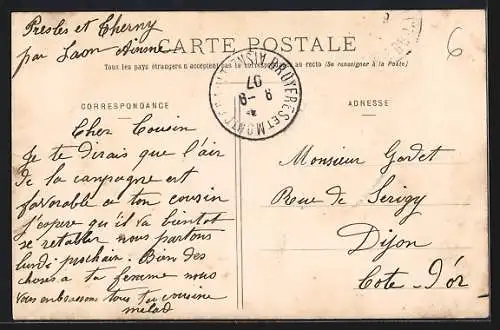 Presles et Therny
par Laon Aisne
CARTE POSTALE
Tous les pays étrangers n'acceptent pas la correspondance au recto (Se renseigner à la Poste)
BRUYERES ET MONT AISNE
8 - 9
07
6
CORRESPONDANCE
ADRESSE
Cher Cousin
Je te dirais que l'air
de la campagne est
favorable a ton cousin
j'espere qu'il va bientot
se retablir nous partons
lundi prochain. Bien des
choses a ta femme nous
vous embrassons tous ta cousine
Monsieur Godet
Rue de Serigy
Dijon
Cote-d'or